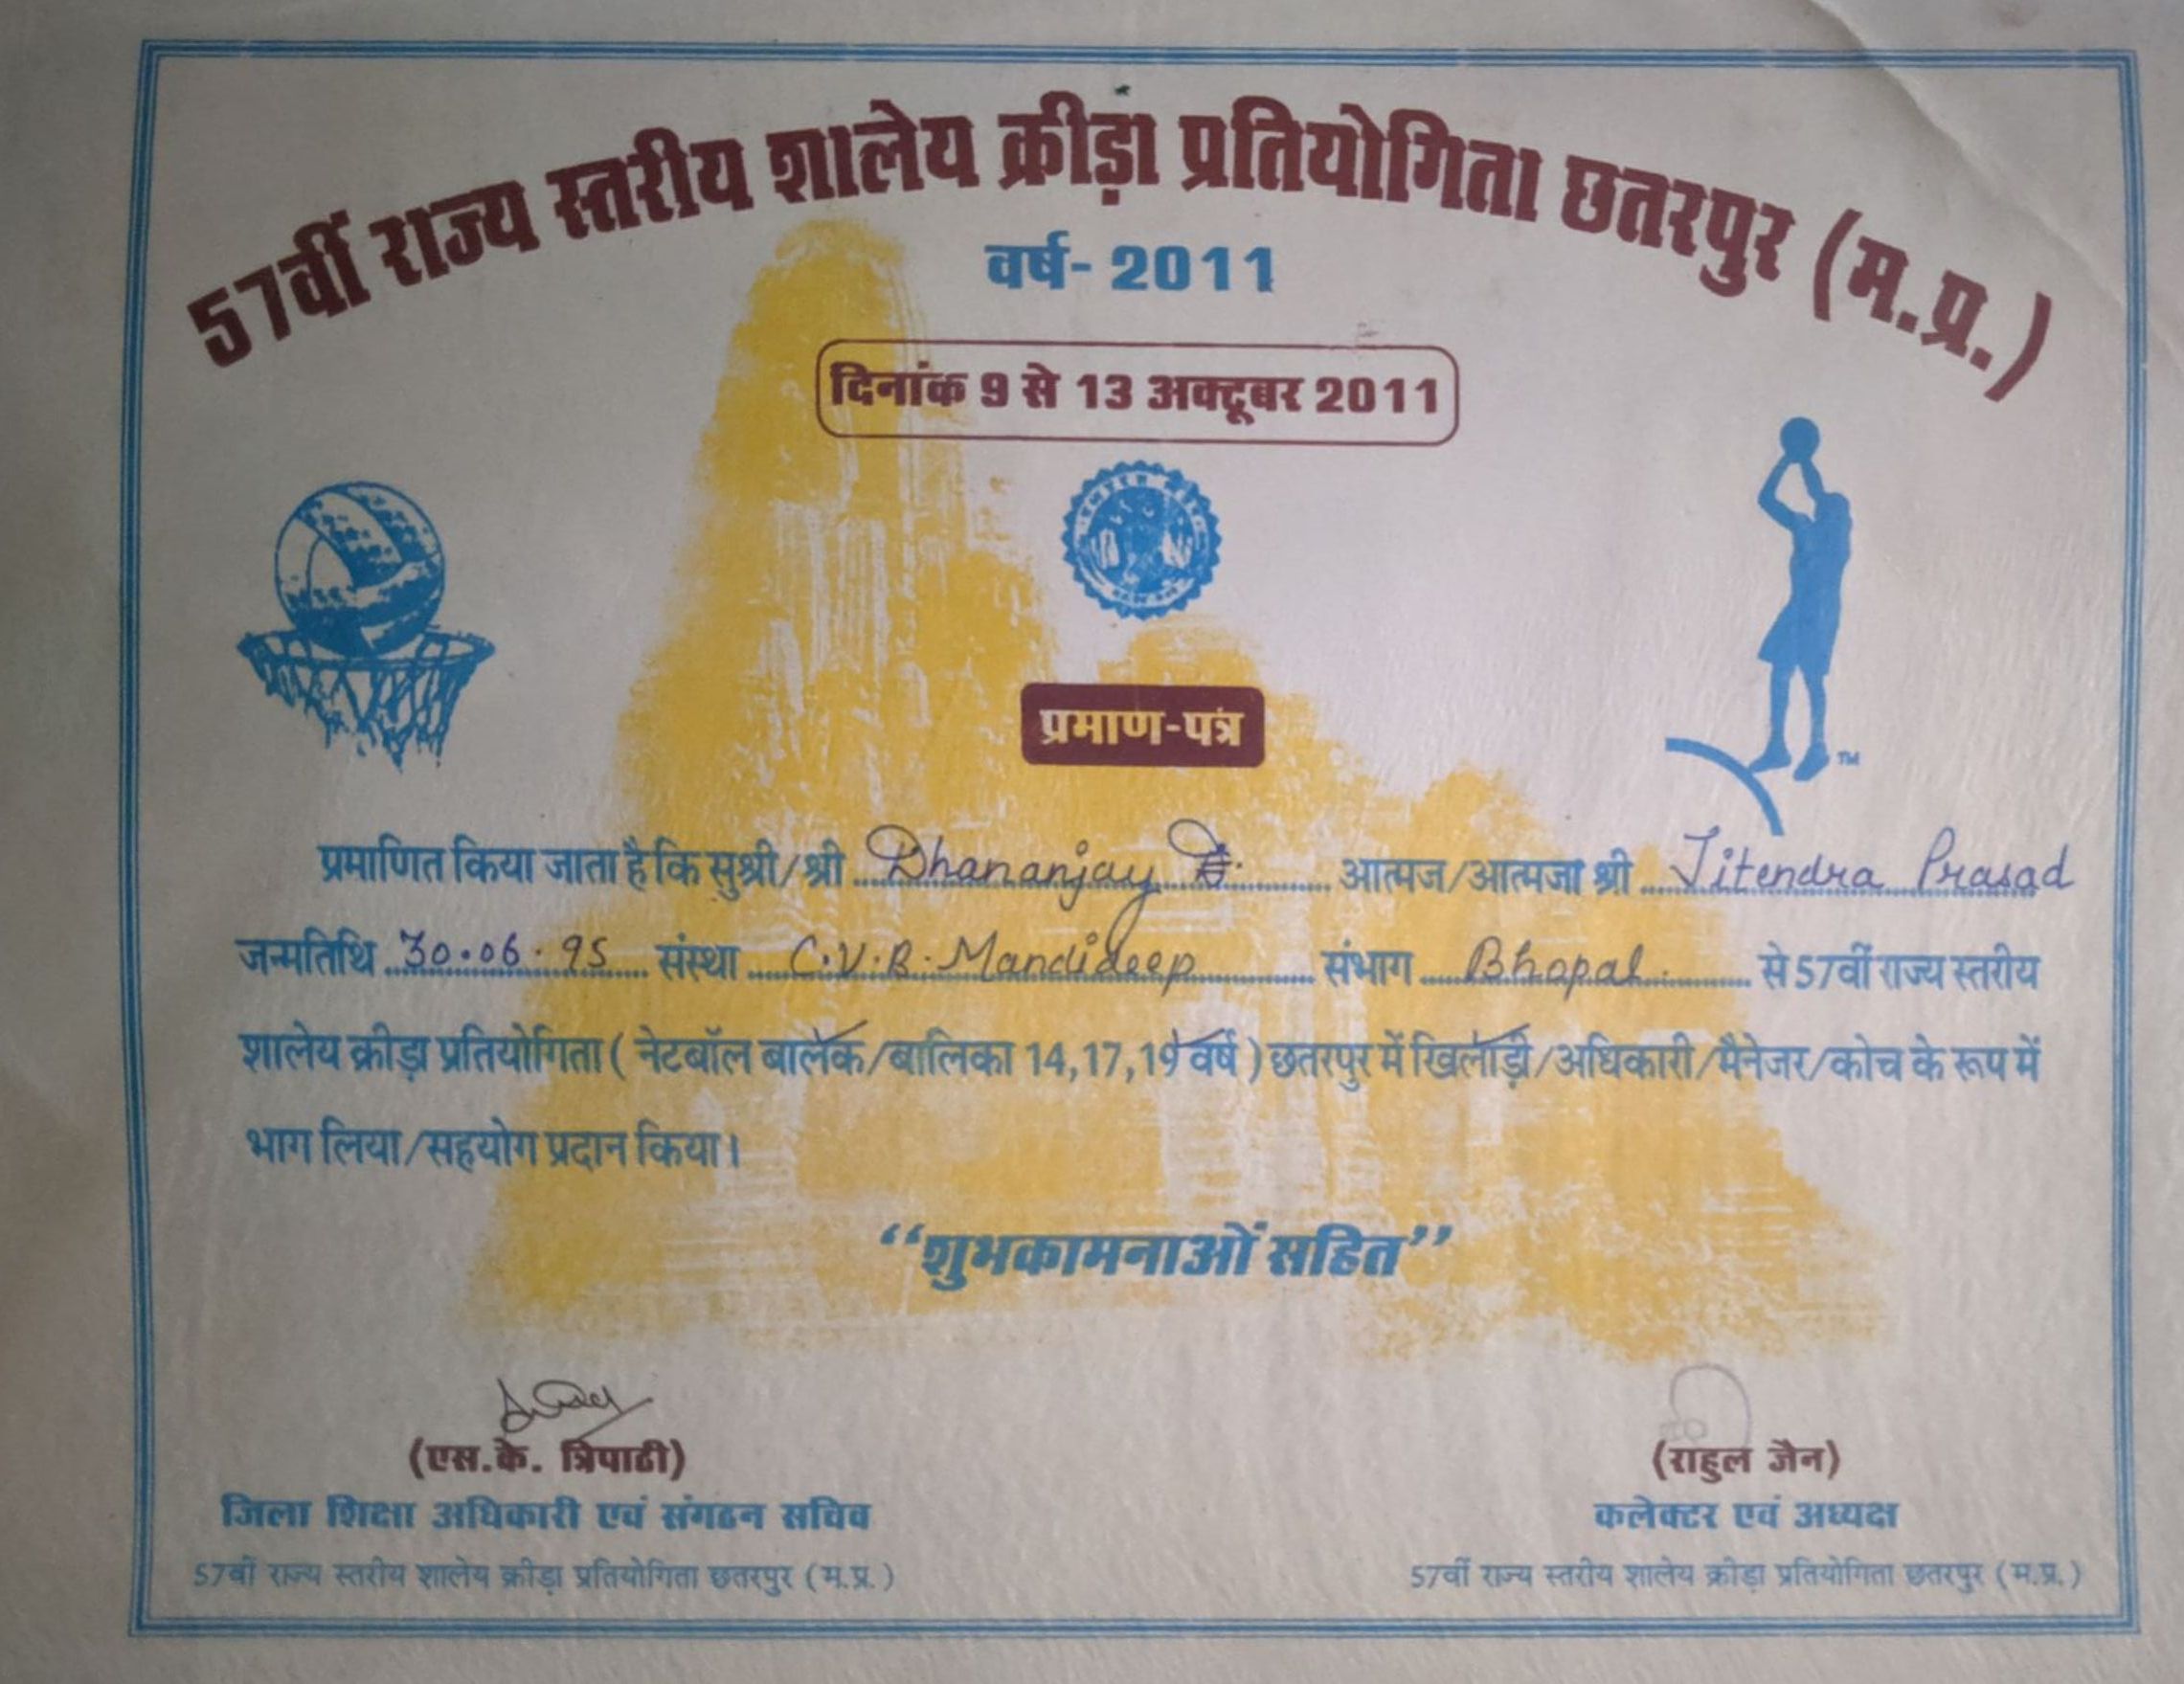 57वीं राज्य स्तरीय शालेय क्रीड़ा प्रतियोगिता छतरपुर (म.प्र.)
वर्ष- 2011
दिनांक 9 से 13 अक्टूबर 2011
प्रमाण-पत्र
TM
प्रमाणित किया जाता है कि सुश्री/श्री Dhananjay आत्मज/आत्मजा श्री Jitendra Prasad
जन्मतिथि 30.06.95 संस्था C.V.B. Mandideep संभाग Bhopal. से 57वीं राज्य स्तरीय
शालेय क्रीड़ा प्रतियोगिता ( नेटबॉल बालक/बालिका 14,17,19 वर्ष ) छतरपुर में खिलाड़ी/अधिकारी/मैनेजर/कोच के रूप में
भाग लिया/सहयोग प्रदान किया।
“शुभकामनाओं सहित”
(एस.के. त्रिपाठी) (राहुल जैन)
जिला शिक्षा अधिकारी एवं संगठन सचिव कलेक्टर एवं अध्यक्ष
57वीं राज्य स्तरीय शालेय क्रीड़ा प्रतियोगिता छतरपुर (म.प्र.) 57वीं राज्य स्तरीय शालेय क्रीड़ा प्रतियोगिता छतरपुर (म.प्र.)